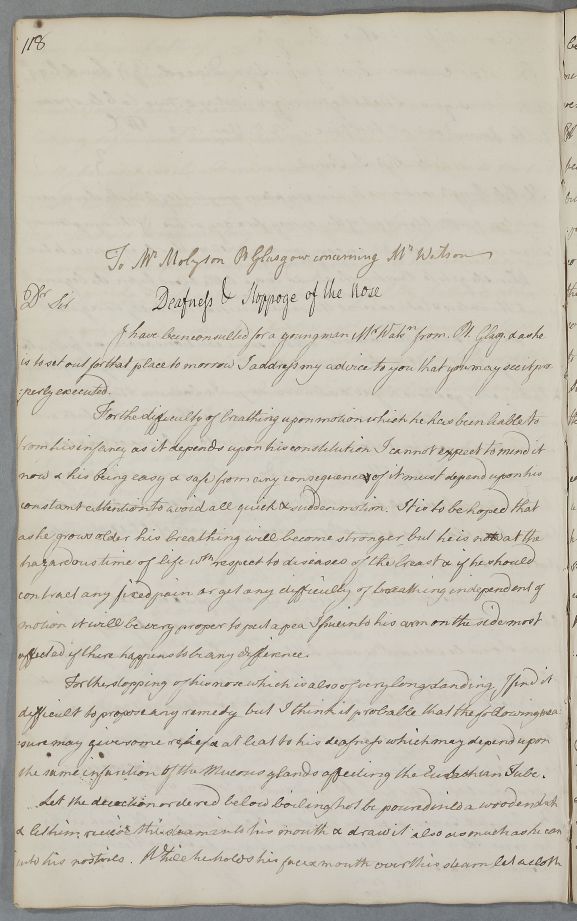 118
To Mr Molyson Pt Glasgow concerning Mr Watson
Deafness & Stoppage of the Nose
Dr Sir
I have been consulted for a young man Mr Watsn from Pt. Glasg. & as he
is to set out for that place to morrow I address my advice to you that you may see it pro
:perly executed.
For the difficulty of breathing upon motion which he has been liable to
from his infancy as it depends upon his constitution I cannot expect to mend it
now & his being easy & safe from any consequences of it must depend upon his
constant attention to avoid all quick & sudden motion. It is to be hoped that
as he grows older his breathing will become stronger but he is now at the
hazardous time of life wth respect to diseases of the breast & if he should
contract any fixed pain or get any difficulty of breathing independent of
motion it will be very proper to put a pea Issue into his arm on the side most
affected if there happens to be any difference.
For the stopping of his nose which is also of very long standing I find it
difficult to propose any remedy but I think it probable that the following mea:
:sure may give some relief & at least to his deafness which may depend upon
the same infarction of the Mucous glands affecting the Eustachian Tube.
Let the decoction ordered below boiling hot be poured into a wooden dish
& let him receive the steam into his mouth & draw it also as much as he can
into his nostrils. While he holds his face & mouth over this steam let a cloth